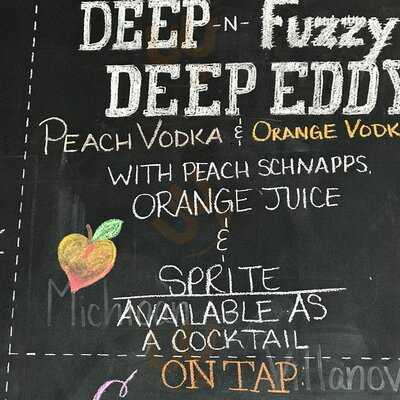 DEEP -N- Fuzzy
DEEP EDDY
PEACH VODKA & ORANGE VODK
WITH PEACH SCHNAPPS,
ORANGE JUICE
&
SPRITE
AVAILABLE AS
A COCKTAIL
ON TAP